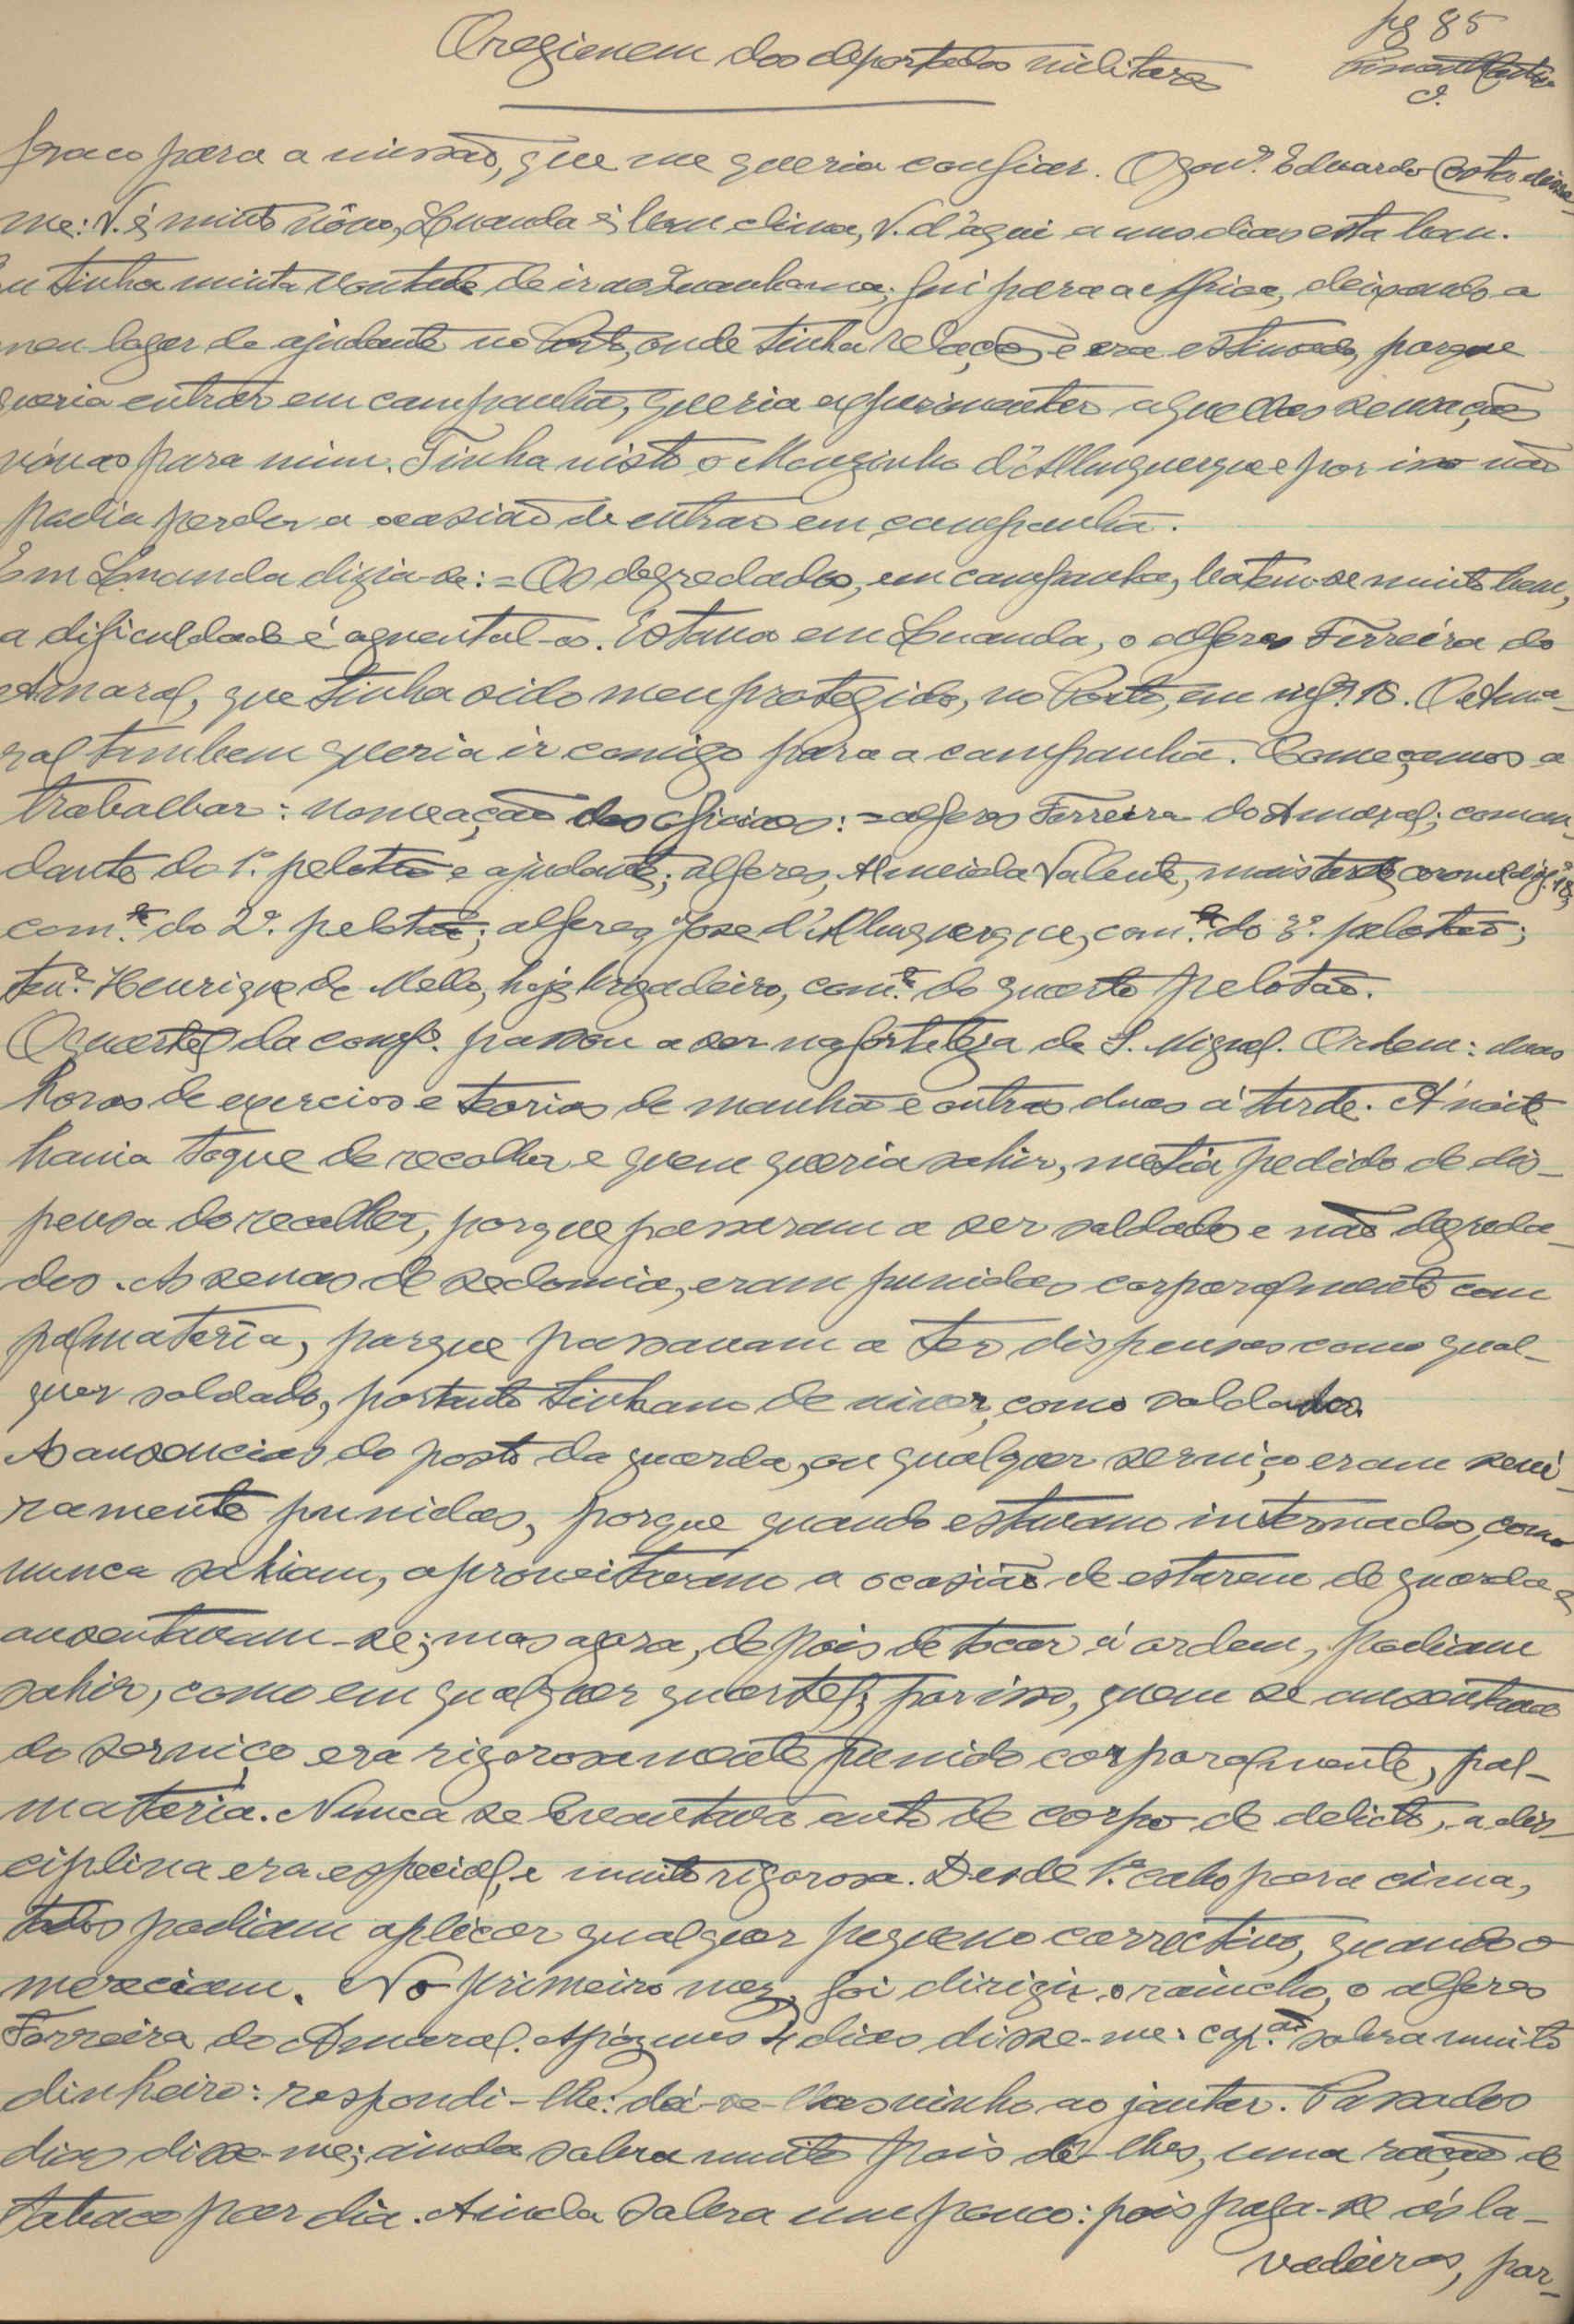 O regimem dos deportados militares
pg 85
fraco para a missão, que me queria confiar. O gov.or Eduardo Costa disse-
me: V. é muito nôvo, Luanda é bom clima, V. d'aqui a uns dias esta bom.
Eu tinha muita vontade de ir ao Cuanhama; fui para a Africa, deixando o
meu logar de ajudante no Porto, onde tinha relações e era estimado, porque
queria entrar em campanha, queria experimentar aquellas sensações
nóvas para mim. Tinha visto o Mouzinho d'Albuquerque e por isso não
podia perder a ocasião de entrar em campanha.
Em Luanda dizia-se: = Os degredados, em campanha, batem-se muito bem,
a dificuldade é aguental-os. Estava em Luanda, o alferes Ferreira do
Amaral, que tinha sido meu protegido, no Porto, em inf.ª 18. O Ama-
ral tambem queria ir comigo para a campanha. Começamos a
trabalhar: nomeação dos oficiaes: = alferes Ferreira do Amaral; coman-
dante do 1.º pelotão e ajudante; alferes, Almeida Valente, mais tarde coronel d'inf.ª 18,
com.te do 2.º pelotão; alferes José d'Albuquerque, com.te do 3.º pelotão;
ten.e Henrique de Mello, hoje brigadeiro, com.te do quarto pelotão.
O quartel da comp.ª passou a ser na fortaleza de S. Miguel. Ordem: duas
horas de exercios e teorias de manhã e outras duas á tarde. Á noite
havia toque de recolher e quem queria sahir, metia pedido de dis-
pensa do recolher, porque passaram a ser soldados e não degreda-
dos. As senas de sodomia, eram punidas corporalmente com
palmatoria, porque passavam a ter dispensas como qual-
quer soldado, portanto tinham de viver, como soldados.
As ausencias do posto da guarda, ou qualquer serviço eram sevé-
ramente punidas, porque quando estavam internados, como
nunca sahiam, aproveitavam a ocasião de estarem de guarda e
ausentavam-se; mas agora, depois de tocar á ordem, podiam
sahir, como em qualquer quartel; por isso, quem se ausentava
do serviço era rigorosamente punido corporalmente, pal-
matoria. Nunca se levantava auto de corpo de delicto, a dis-
ciplina era especial, e muito rigorosa. Desde 1.º cabo para cima,
todos podiam aplicar qualquer pequeno correctivo, quando o
mereciam. No primeiro mez, foi dirigir o rancho, o alferes
Ferreira do Amaral. Após uns 4 dias disse-me: cap.ão sobra muito
dinheiro: respondi-lhe: dá-se-lhes vinho ao jantar. Passados
dias disse-me; ainda sobra muito pois dê-lhes, uma ração de
tabaco por dia. Ainda sobra um pouco: pois paga-se ás la-
vadeiras, por-